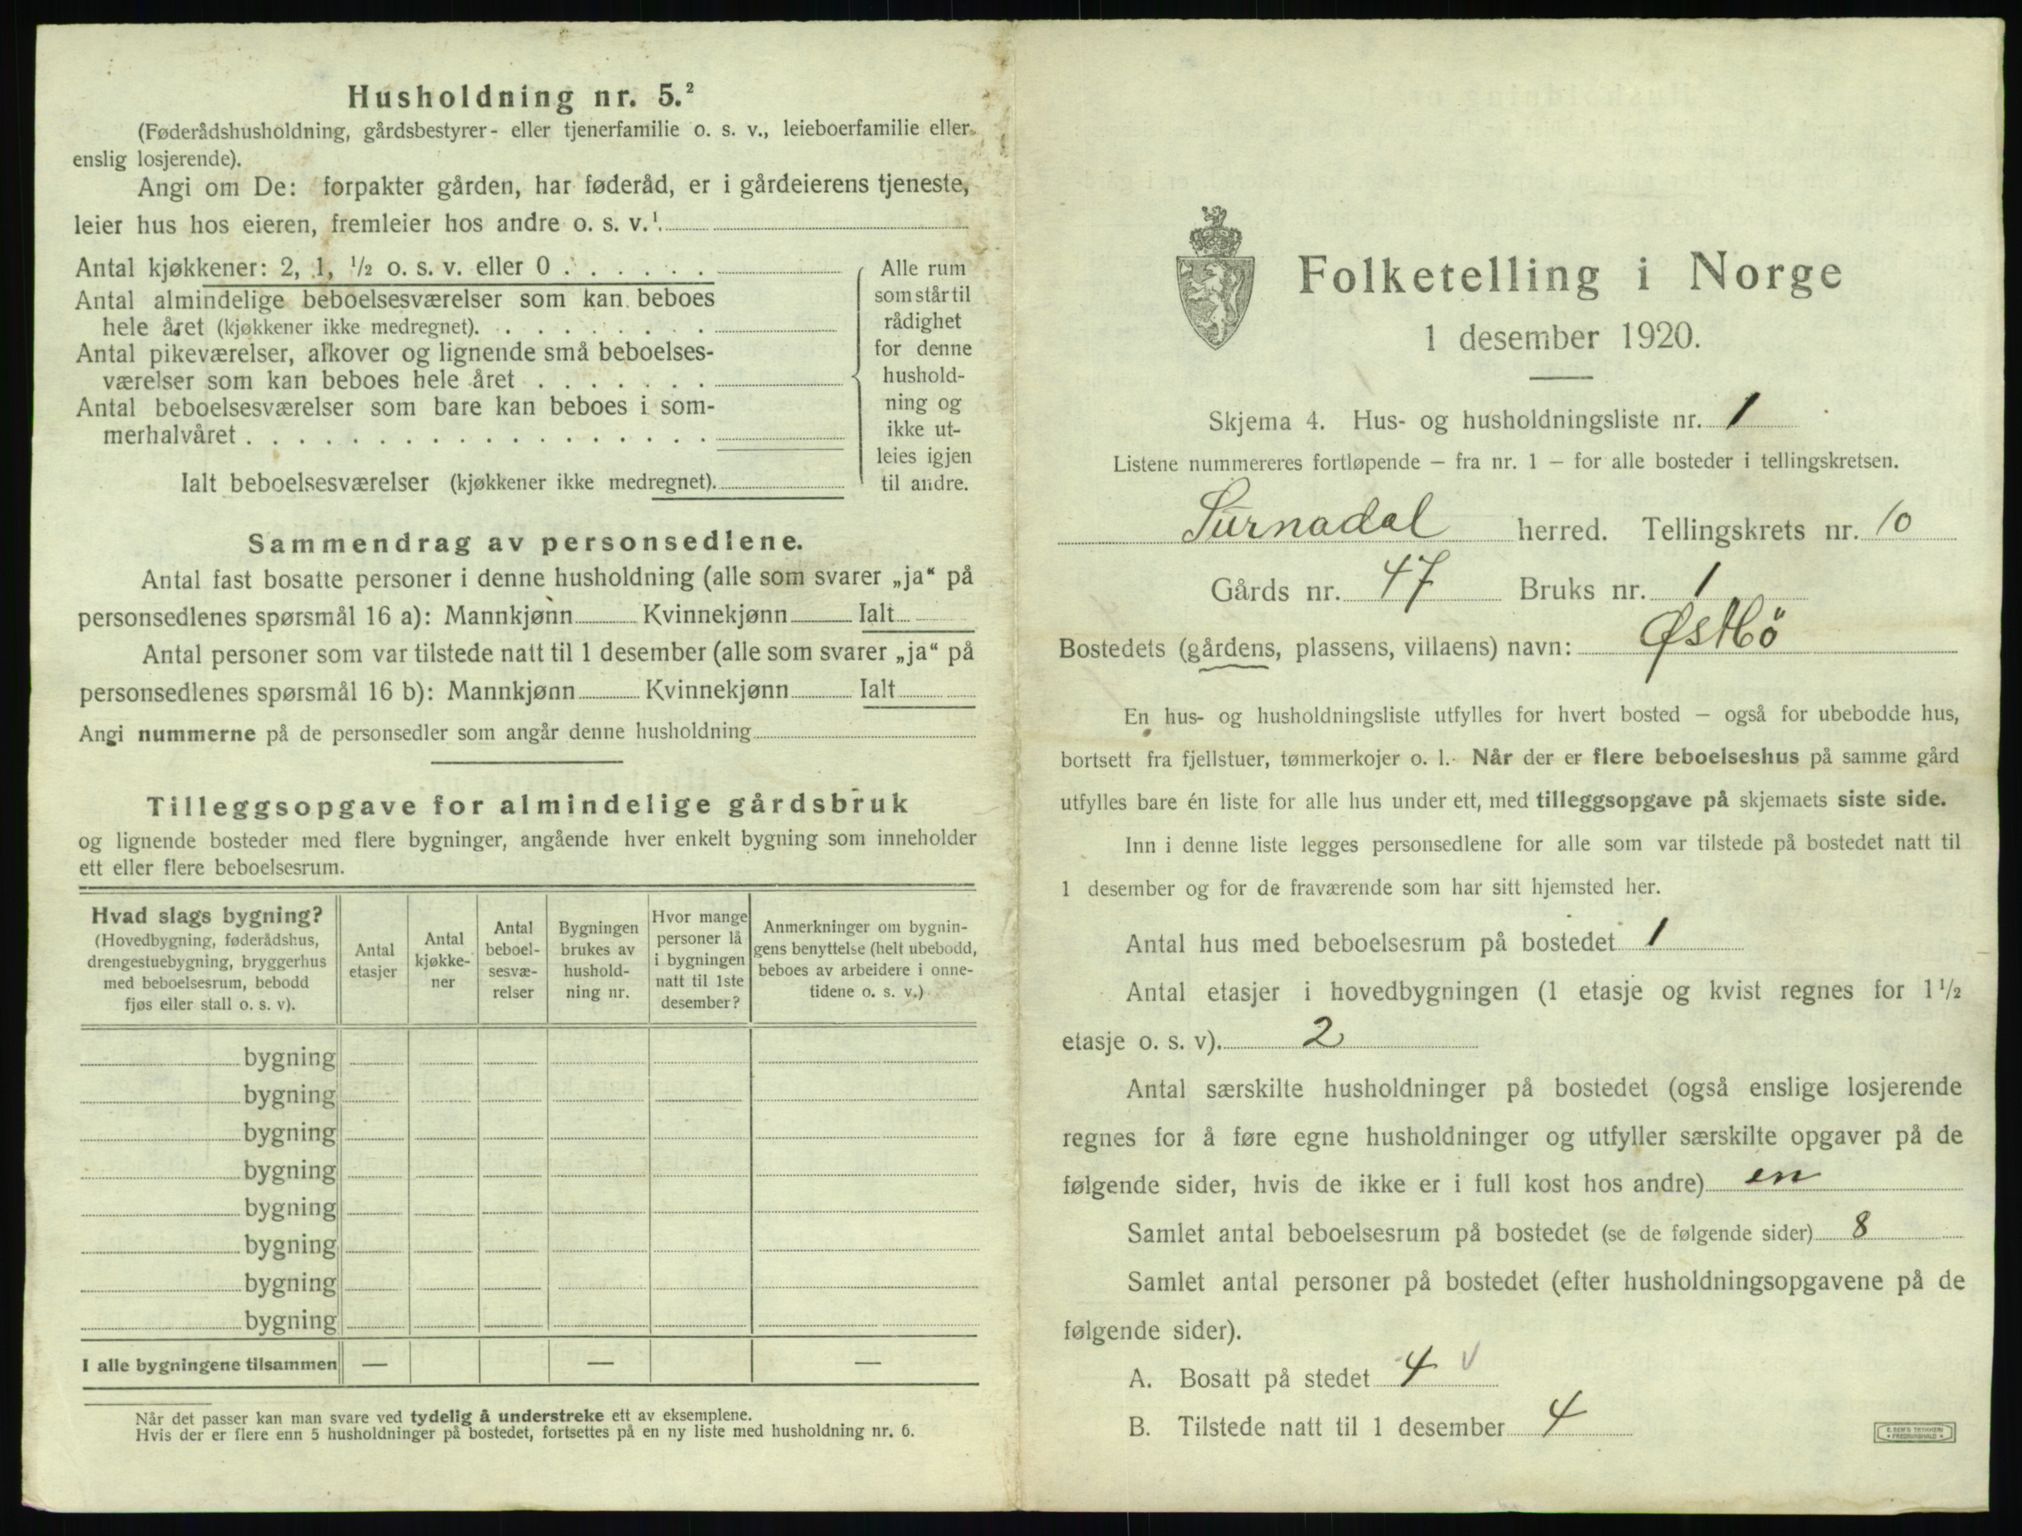 Husholdning nr. 5.²
(Føderådshusholdning, gårdsbestyrer- eller tjenerfamilie o. s. v., leieboerfamilie eller
enslig losjerende).
Angi om De: forpakter gården, har føderåd, er i gårdeierens tjeneste,
leier hus hos eieren, fremleier hos andre o. s. v.¹
Antal kjøkkener: 2, 1, ½ o. s. v. eller 0 . . . . . .
Antal almindelige beboelsesværelser som kan beboes
hele året (kjøkkener ikke medregnet). . . . . . . . .
Antal pikeværelser, alkover og lignende små beboelses-
værelser som kan beboes hele året . . . . . . .
Antal beboelsesværelser som bare kan beboes i som-
merhalvåret . . . . . . . . . . . . . . . . . .
Ialt beboelsesværelser (kjøkkener ikke medregnet).
Alle rum
som står til
rådighet
for denne
hushold-
ning og
ikke ut-
leies igjen
til andre.
Sammendrag av personsedlene.
Antal fast bosatte personer i denne husholdning (alle som svarer „ja“ på
personsedlenes spørsmål 16 a): Mannkjønn Kvinnekjønn Ialt
Antal personer som var tilstede natt til 1 desember (alle som svarer „ja“ på
personsedlenes spørsmål 16 b): Mannkjønn Kvinnekjønn Ialt
Angi nummerne på de personsedler som angår denne husholdning
Tilleggsopgave for almindelige gårdsbruk
og lignende bosteder med flere bygninger, angående hver enkelt bygning som inneholder
ett eller flere beboelsesrum.
Hvad slags bygning?
(Hovedbygning, føderådshus,
drengestuebygning, bryggerhus
med beboelsesrum, bebodd
fjøs eller stall o. s. v).
Antal
etasjer
Antal
kjøkke-
ner
Antal
beboel-
sesvæ-
relser
Bygningen
brukes av
hushold-
ning nr.
Hvor mange
personer lå
i bygningen
natt til 1ste
desember?
Anmerkninger om bygnin-
gens benyttelse (helt ubebodd,
beboes av arbeidere i onne-
tidene o. s. v.)
bygning
bygning
bygning
bygning
bygning
bygning
bygning
bygning
I alle bygningene tilsammen — — —
Når det passer kan man svare ved tydelig å understreke ett av eksemplene.
Hvis der er flere enn 5 husholdninger på bostedet, fortsettes på en ny liste med husholdning nr. 6.
Folketelling i Norge
1 desember 1920.
Skjema 4. Hus- og husholdningsliste nr. 1
Listene nummereres fortløpende – fra nr. 1 – for alle bosteder i tellingskretsen.
Surnadal herred. Tellingskrets nr. 10
Gårds nr. 47 Bruks nr. 1
Bostedets (gårdens, plassens, villaens) navn: Østbö
En hus- og husholdningsliste utfylles for hvert bosted – også for ubebodde hus,
bortsett fra fjellstuer, tømmerkojer o. l. Når der er flere beboelseshus på samme gård
utfylles bare én liste for alle hus under ett, med tilleggsopgave på skjemaets siste side.
Inn i denne liste legges personsedlene for alle som var tilstede på bostedet natt til
1 desember og for de fraværende som har sitt hjemsted her.
Antal hus med beboelsesrum på bostedet 1
Antal etasjer i hovedbygningen (1 etasje og kvist regnes for 1½
etasje o. s. v). 2
Antal særskilte husholdninger på bostedet (også enslige losjerende
regnes for å føre egne husholdninger og utfyller særskilte opgaver på de
følgende sider, hvis de ikke er i full kost hos andre) en
Samlet antal beboelsesrum på bostedet (se de følgende sider) 8
Samlet antal personer på bostedet (efter husholdningsopgavene på de
følgende sider).
A. Bosatt på stedet 4 v
B. Tilstede natt til 1 desember 4